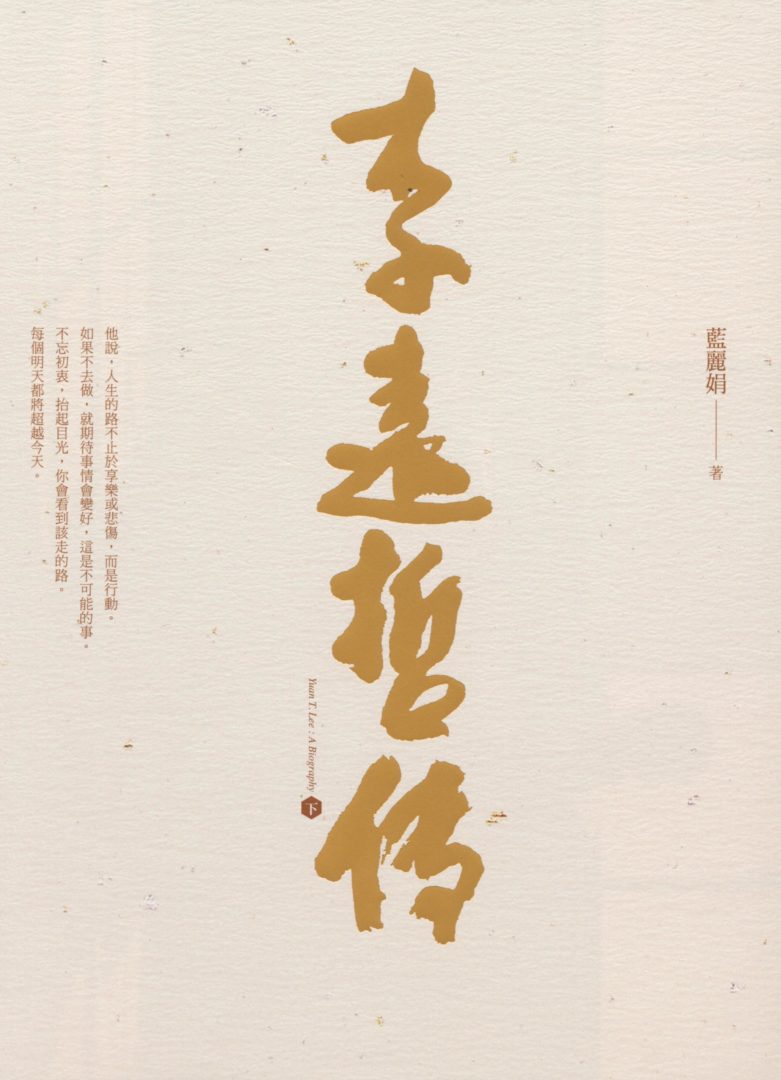 藍麗娟——著
李遠哲传
Yuan T. Lee : A Biography 下
他說，人生的路不止於享樂或悲傷，而是行動。
如果不去做，就期待事情會變好，這是不可能的事。
不忘初衷，抬起目光，你會看到該走的路。
每個明天都將超越今天。